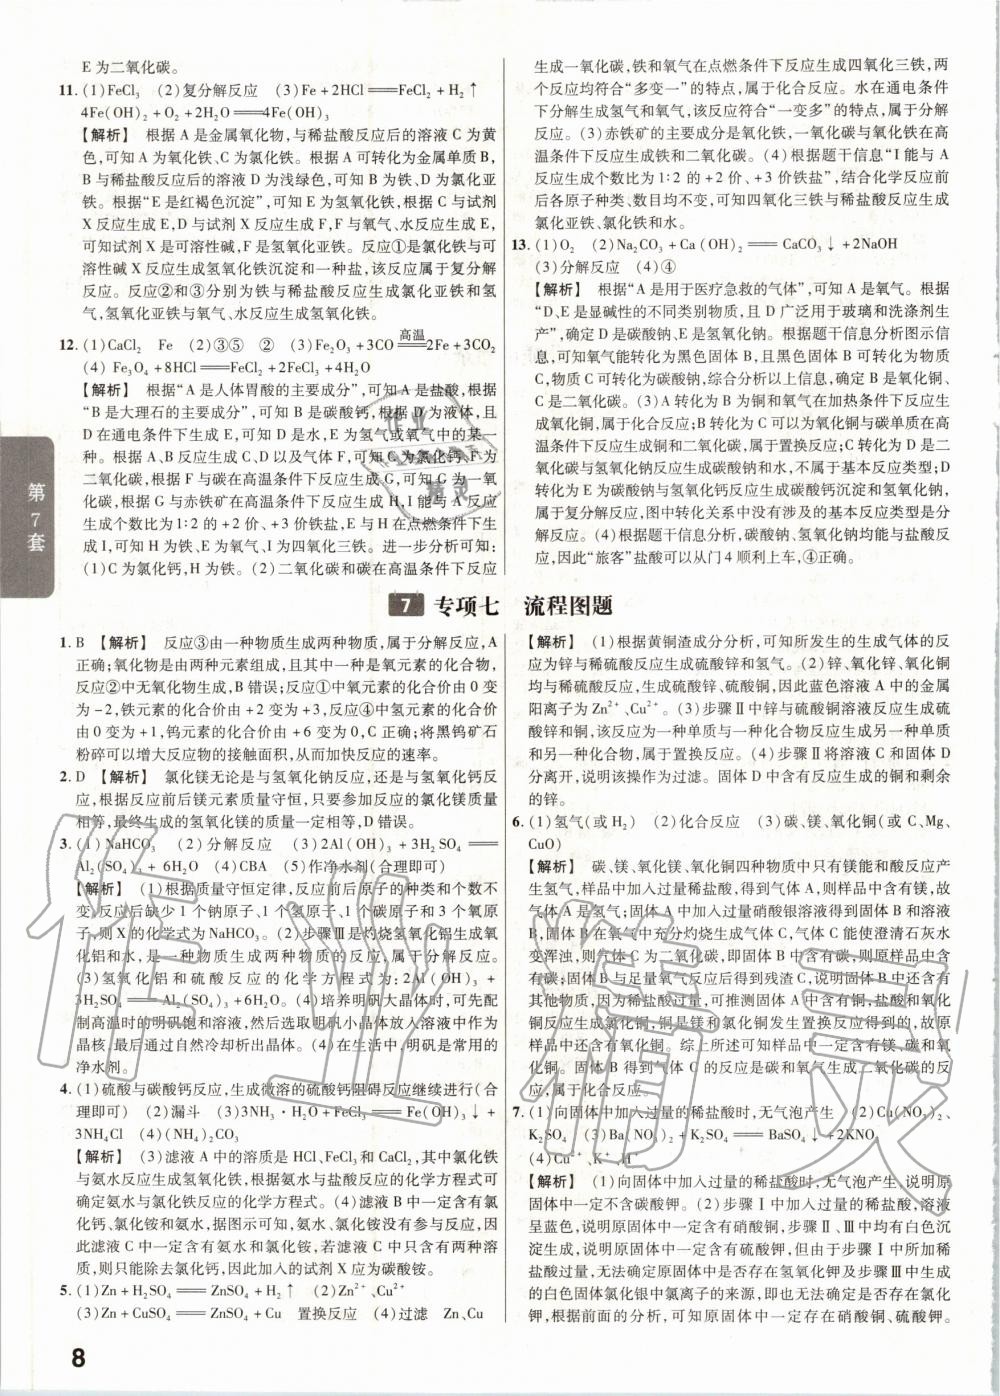 E 为二氧化碳。
11. (1)FeCl₃ (2)复分解反应 (3)Fe+2HCl══FeCl₂+H₂↑
4Fe(OH)₂+O₂+2H₂O══4Fe(OH)₃
【解析】 根据 A 是金属氧化物,与稀盐酸反应后的溶液 C 为黄
色,可知 A 为氧化铁、C 为氯化铁。根据 A 可转化为金属单质 B,
B 与稀盐酸反应后的溶液 D 为浅绿色,可知 B 为铁、D 为氯化亚
铁。根据“E 是红褐色沉淀”,可知 E 为氢氧化铁,根据 C 与试剂
X 反应生成 E,D 与试剂 X 反应生成 F,F 与氧气、水反应生成 E,
可知试剂 X 是可溶性碱,F 是氢氧化亚铁。反应①是氯化铁与可
溶性碱反应生成氢氧化铁沉淀和一种盐,该反应属于复分解
反应。反应②和③分别为铁与稀盐酸反应生成氯化亚铁和氢
气,氢氧化亚铁与氧气、水反应生成氢氧化铁。
12. (1)CaCl₂ Fe (2)③⑤ ② (3)Fe₂O₃+3CO══高温2Fe+3CO₂
(4) Fe₃O₄+8HCl══FeCl₂+2FeCl₃+4H₂O
【解析】 根据“A 是人体胃酸的主要成分”,可知 A 是盐酸,根据
“B 是大理石的主要成分”,可知 B 是碳酸钙,根据 D 为液体,且
D 在通电条件下生成 E,可知 D 是水,E 为氢气或氧气中的某一
种,根据 A、B 反应生成 C、D 以及气体 F,可知 C 为氯化钙、F 为
二氧化碳,根据 F 与碳在高温条件下反应生成 G,可知 G 为一氧
化碳,根据 G 与赤铁矿在高温条件下反应生成 H,I 能与 A 反应
生成个数比为 1∶2 的+2 价、+3 价铁盐,E 与 H 在点燃条件下生
成 I,可知 H 为铁、E 为氧气、I 为四氧化三铁。进一步分析可知:
(1)C 为氯化钙,H 为铁。(2)二氧化碳和碳在高温条件下反应
生成一氧化碳,铁和氧气在点燃条件下反应生成四氧化三铁,两
个反应均符合“多变一”的特点,属于化合反应。水在通电条件
下分解生成氢气和氧气,该反应符合“一变多”的特点,属于分解
反应。(3)赤铁矿的主要成分是氧化铁,一氧化碳与氧化铁在高
温条件下反应生成铁和二氧化碳。(4)根据题干信息“I 能与 A
反应生成个数比为 1∶2 的+2 价、+3 价铁盐”,结合化学反应前
后各原子种类、数目均不变,可知四氧化三铁与稀盐酸反应生成
氯化亚铁、氯化铁和水。
13. (1)O₂ (2)Na₂CO₃+Ca(OH)₂══CaCO₃↓+2NaOH
(3)分解反应 (4)④
【解析】 根据“A 是用于医疗急救的气体”,可知 A 是氧气。根据
“D、E 是显碱性的不同类别物质,且 D 广泛用于玻璃和洗涤剂生
产”,确定 D 是碳酸钠、E 是氢氧化钠。根据题干信息分析图示信
息,可知氧气能转化为黑色固体 B,黑色固体 B 可转化为物质
C,物质 C 可转化为碳酸钠,综合分析以上信息,确定 B 是氧化铜、
C 是二氧化碳。(3)A 转化为 B 为铜和氧气在加热条件下反应生
成氧化铜,属于化合反应;B 转化为 C 可以为氧化铜与碳单质在高
温条件下反应生成铜和二氧化碳,属于置换反应;C 转化为 D 是二
氧化碳与氢氧化钠反应生成碳酸钠和水,不属于基本反应类型;D
转化为 E 为碳酸钠与氢氧化钙反应生成碳酸钙沉淀和氢氧化钠,
属于复分解反应,图中转化关系中没有涉及的基本反应类型是分
解反应。(4)氧化铜、碳酸钠、氢氧化钠均能与盐酸反应,氧气不能与盐酸反
应,因此“旅客”盐酸可以从门 4 顺利上车,④正确。
第7套
7 专项七 流程图题
1. B 【解析】 反应③由一种物质生成两种物质,属于分解反应,A
正确;氧化物是由两种元素组成,且其中一种是氧元素的化合物,
反应②中无氧化物生成,B 错误;反应①中氧元素的化合价由 0 变
为-2,铁元素的化合价由+2 变为+3,反应④中氢元素的化合价
由 0 变为+1,钨元素的化合价由+6 变为 0,C 正确;将黑钨矿石
粉碎可以增大反应物的接触面积,从而加快反应的速率。
2. D 【解析】 氯化镁无论是与氢氧化钠反应,还是与氢氧化钙反
应,根据反应前后镁元素质量守恒,只要参加反应的氯化镁质量
相等,最终生成的氢氧化镁的质量一定相等,D 错误。
3. (1)NaHCO₃ (2)分解反应 (3)2Al(OH)₃+3H₂SO₄══
Al₂(SO₄)₃+6H₂O (4)CBA (5)作净水剂(合理即可)
【解析】 (1)根据质量守恒定律,反应前后原子的种类和个数不
变,反应后缺少 1 个钠原子、1 个氢原子、1 个碳原子和 3 个氧原
子,则 X 的化学式为 NaHCO₃。(2)步骤Ⅲ是灼烧氢氧化铝生成氧
化铝和水,是一种物质生成两种物质的反应,属于分解反应。
(3)氢氧化铝和硫酸反应的化学方程式为:2Al(OH)₃+
3H₂SO₄══Al₂(SO₄)₃+6H₂O。(4)培养明矾大晶体时,可先配
制高温时的明矾饱和溶液,然后选取明矾小晶体放入溶液中作为
晶核,最后通过自然冷却析出晶体。(4)在生活中,明矾是常用的
净水剂。
4. (1)硫酸与碳酸钙反应,生成微溶的硫酸钙阻碍反应继续进行(合
理即可) (2)漏斗 (3)3NH₃·H₂O+FeCl₃══Fe(OH)₃↓+
3NH₄Cl (4)(NH₄)₂CO₃
【解析】 (3)滤液 A 中的溶质是 HCl、FeCl₃ 和 CaCl₂,其中氯化铁
与氨水反应生成氢氧化铁,根据氨水与盐酸反应的化学方程式可
确定氨水与氯化铁反应的化学方程式。(4)滤液 B 中一定含有氯
化钙、氯化铵和氨水,据图示可知,氨水、氯化铵没有参与反应,因
此滤液 C 中一定含有氨水和氯化铵;若滤液 C 中只有两种溶
质,则只能除去氯化钙,因此加入的试剂 X 应为碳酸铵。
5. (1)Zn+H₂SO₄══ZnSO₄+H₂↑ (2)Zn²⁺、Cu²⁺
(3)Zn+CuSO₄══ZnSO₄+Cu 置换反应 (4)过滤 Zn、Cu
【解析】 (1)根据黄铜渣成分分析,可知所发生的生成气体的反
应为锌与稀硫酸反应生成硫酸锌和氢气。(2)锌、氧化锌、氧化铜
均与稀硫酸反应,生成硫酸锌、硫酸铜,因此蓝色溶液 A 中的金属
阳离子为 Zn²⁺、Cu²⁺。(3)步骤Ⅱ中锌与硫酸铜溶液反应生成硫
酸锌和铜,该反应为一种单质与一种化合物反应生成另一种单质
和另一种化合物,属于置换反应。(4)步骤Ⅱ将溶液 C 和固体 D
分离开,说明该操作为过滤。固体 D 中含有反应生成的铜和剩余
的锌。
6. (1)氢气(或 H₂) (2)化合反应 (3)碳、镁、氧化铜(或 C、Mg、
CuO)
【解析】 碳、镁、氧化镁、氧化铜四种物质中只有镁能和酸反应产
生氢气,样品中加入过量稀盐酸,得到气体 A,则样品中含有镁,故
气体 A 是氢气;固体 A 中加入过量硝酸银溶液得到固体 B 和溶液
B,固体 B 在氧气中充分灼烧生成气体 C,气体 C 能使澄清石灰水
变浑浊,则气体 C 为二氧化碳,即固体 B 中含有碳,样品中含有
碳;固体 B 与足量氧气反应后得到残渣 C,说明固体 B 中还含有
其他物质,因为稀盐酸过量,可推测固体 A 中含有铜,盐酸和氧化
铜反应生成氯化铜,铜是镁和氯化铜发生置换反应得到的,故原
样品中还含有氧化铜。综上所述可知,原样品中一定含有镁、碳和氧
化铜。(2)由于气体 C 为二氧化碳,故发生的反应是碳和氧气生成二氧化碳的反
应,属于化合反应。
7. (1)向固体中加入过量的稀盐酸时,无气泡产生 (2)Cu(NO₃)₂、
K₂SO₄ (3)Ba(NO₃)₂+K₂SO₄══BaSO₄↓+2KNO₃
(4)Cu²⁺、K⁺、H⁺
【解析】 (1)向固体中加入过量的稀盐酸时,无气泡产生,说明原
固体中一定不含碳酸钾。(2)步骤Ⅰ中加入过量的稀盐酸,溶液
呈蓝色,说明原固体中一定含有硝酸铜,步骤Ⅱ、Ⅲ中均有白色沉
淀生成,说明原固体中一定含有硫酸钾,但由于步骤Ⅰ中所加过
量稀盐酸,无法确定原固体中是否存在氢氧化钾及步骤Ⅲ中生成
的白色固体氯化银中氯离子的来源,即也无法确定是否存在氯化
钾,根据前面的分析,可知原固体中一定存在硝酸铜、硫酸钾。
8